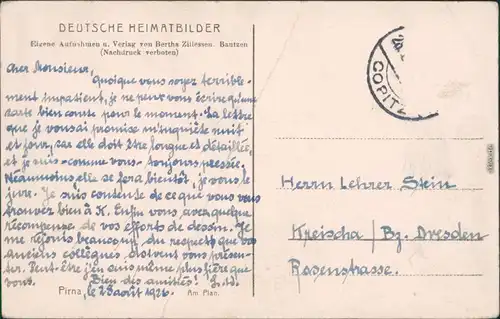 DEUTSCHE HEIMATBILDER
Eigene Aufnahmen u. Verlag von Bertha Zillessen, Bautzen
(Nachdruck verboten)
Cher Monsieur,
quoique vous soyez terrible-
ment impatient, je ne peux vous écrire qu'une
carte bien courte pour le moment. La lettre
que je vous ai promise m'inquiète nuit
et jour, car elle doit être longue et détaillée,
et je suis - comme vous - toujours pressée.
Néanmoins elle se fera bientôt, je vous le
jure. Je suis contente de ce que vous vous
trouvez bien à K. Enfin vous avez quelque
récompense de vos efforts de dessin. Je
me réjouis beaucoup du respect que vos
anciens collègues doivent vous présen-
ter. Peut-être j'en suis même plus fière que
vous. Bien des amitiés!
Pirna, le 28 août 1926. Am Plan.
COPITZ
Herrn Lehrer Stein
Kreischa / Bz. Dresden
Rosenstrasse.